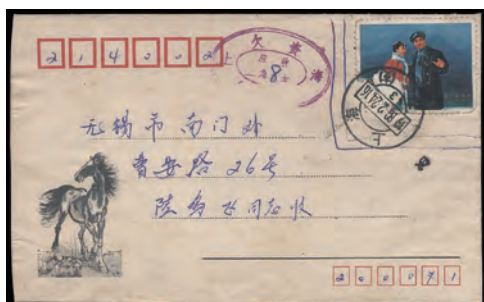 214002
上海 欠资
8
上海
无锡市南门外
安路26号
陆 飞同志收
200071